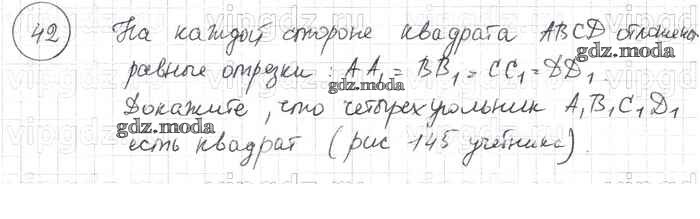 42 На каждой стороне квадрата ABCD отложены
равные отрезки: AA₁ = BB₁ = CC₁ = DD₁
Докажите, что четырехугольник A₁B₁C₁D₁
есть квадрат (рис 145 учебника).
gdz.moda
gdz.moda
gdz.moda
gdz.moda